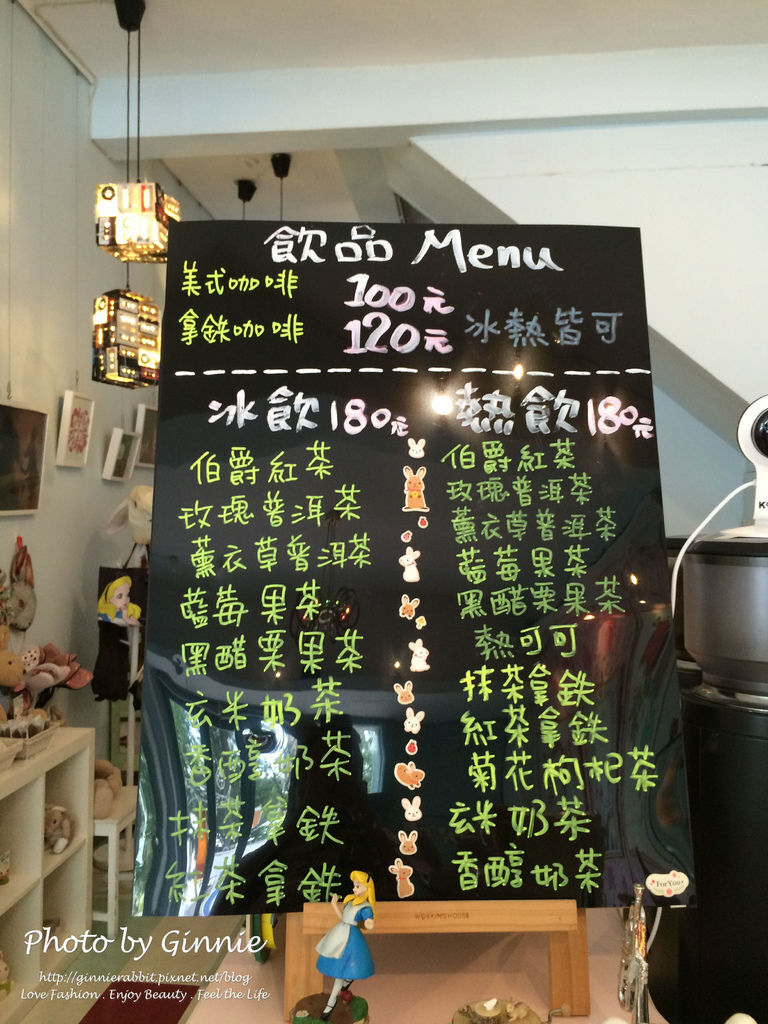 飲品 Menu
美式咖啡 100元
拿鉄咖啡 120元 冰熱皆可
冰飲 180元
伯爵紅茶
玫瑰普洱茶
薰衣草普洱茶
藍莓果茶
黑醋栗果茶
玄米奶茶
香醇奶茶
抹茶拿鉄
紅茶拿鉄
熱飲 180元
伯爵紅茶
玫瑰普洱茶
薰衣草普洱茶
藍莓果茶
黑醋栗果茶
熱可可
抹茶拿鉄
紅茶拿鉄
菊花枸杞茶
玄米奶茶
香醇奶茶
ForYou
Photo by Ginnie
http://ginnierabbit.pixnet.net/blog
Love Fashion . Enjoy Beauty . Feel the Life